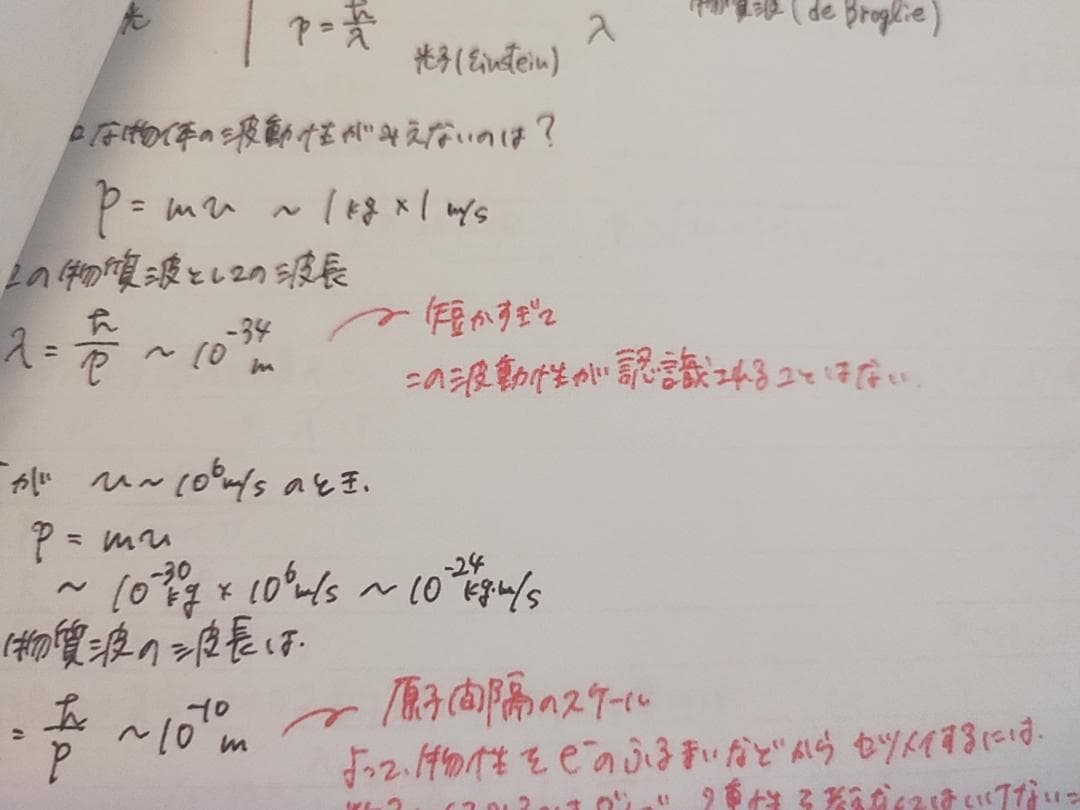 光 p = ℏ/λ λ 物質波 (de Broglie)
光子 (Einstein)
な物体の波動性がみえないのは?
p = mv ~ 1 kg × 1 m/s
この物質波としての波長
λ = ℏ/p ~ 10^-34 m 短かすぎて
この波動性が認識されることはない.
が v ~ 10^6 m/s のとき.
p = mv
~ 10^-30 kg × 10^6 m/s ~ 10^-24 kg·m/s
物質波の波長は.
= ℏ/p ~ 10^-10 m 原子間隔のスケール
よって、物性を e^- のふるまいなどから セツメイするには.